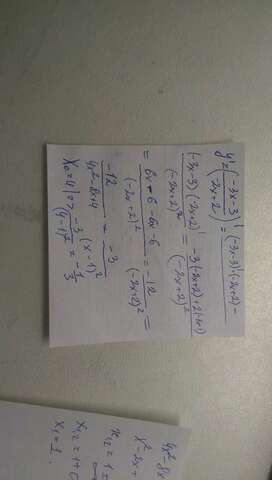 y' = ((-3x-3)/(-2x+2))' = ((-3x-3)'(-2x+2) -
(-3x-3)(-2x+2)')/(-2x+2)² = (-3(-2x+2)+2(-3x-3))/(-2x+2)²
= (6x-6-6x-6)/(-2x+2)² = -12/(-2x+2)² =
-12/(4x²-8x+4) = -3/(x-1)²
x₀=4 | => -3/(4-1)² = -1/3
4x²-8x
x²-2x+
x₁,₂ = 1 ±
x₁,₂ = 1+0
x₁=1.